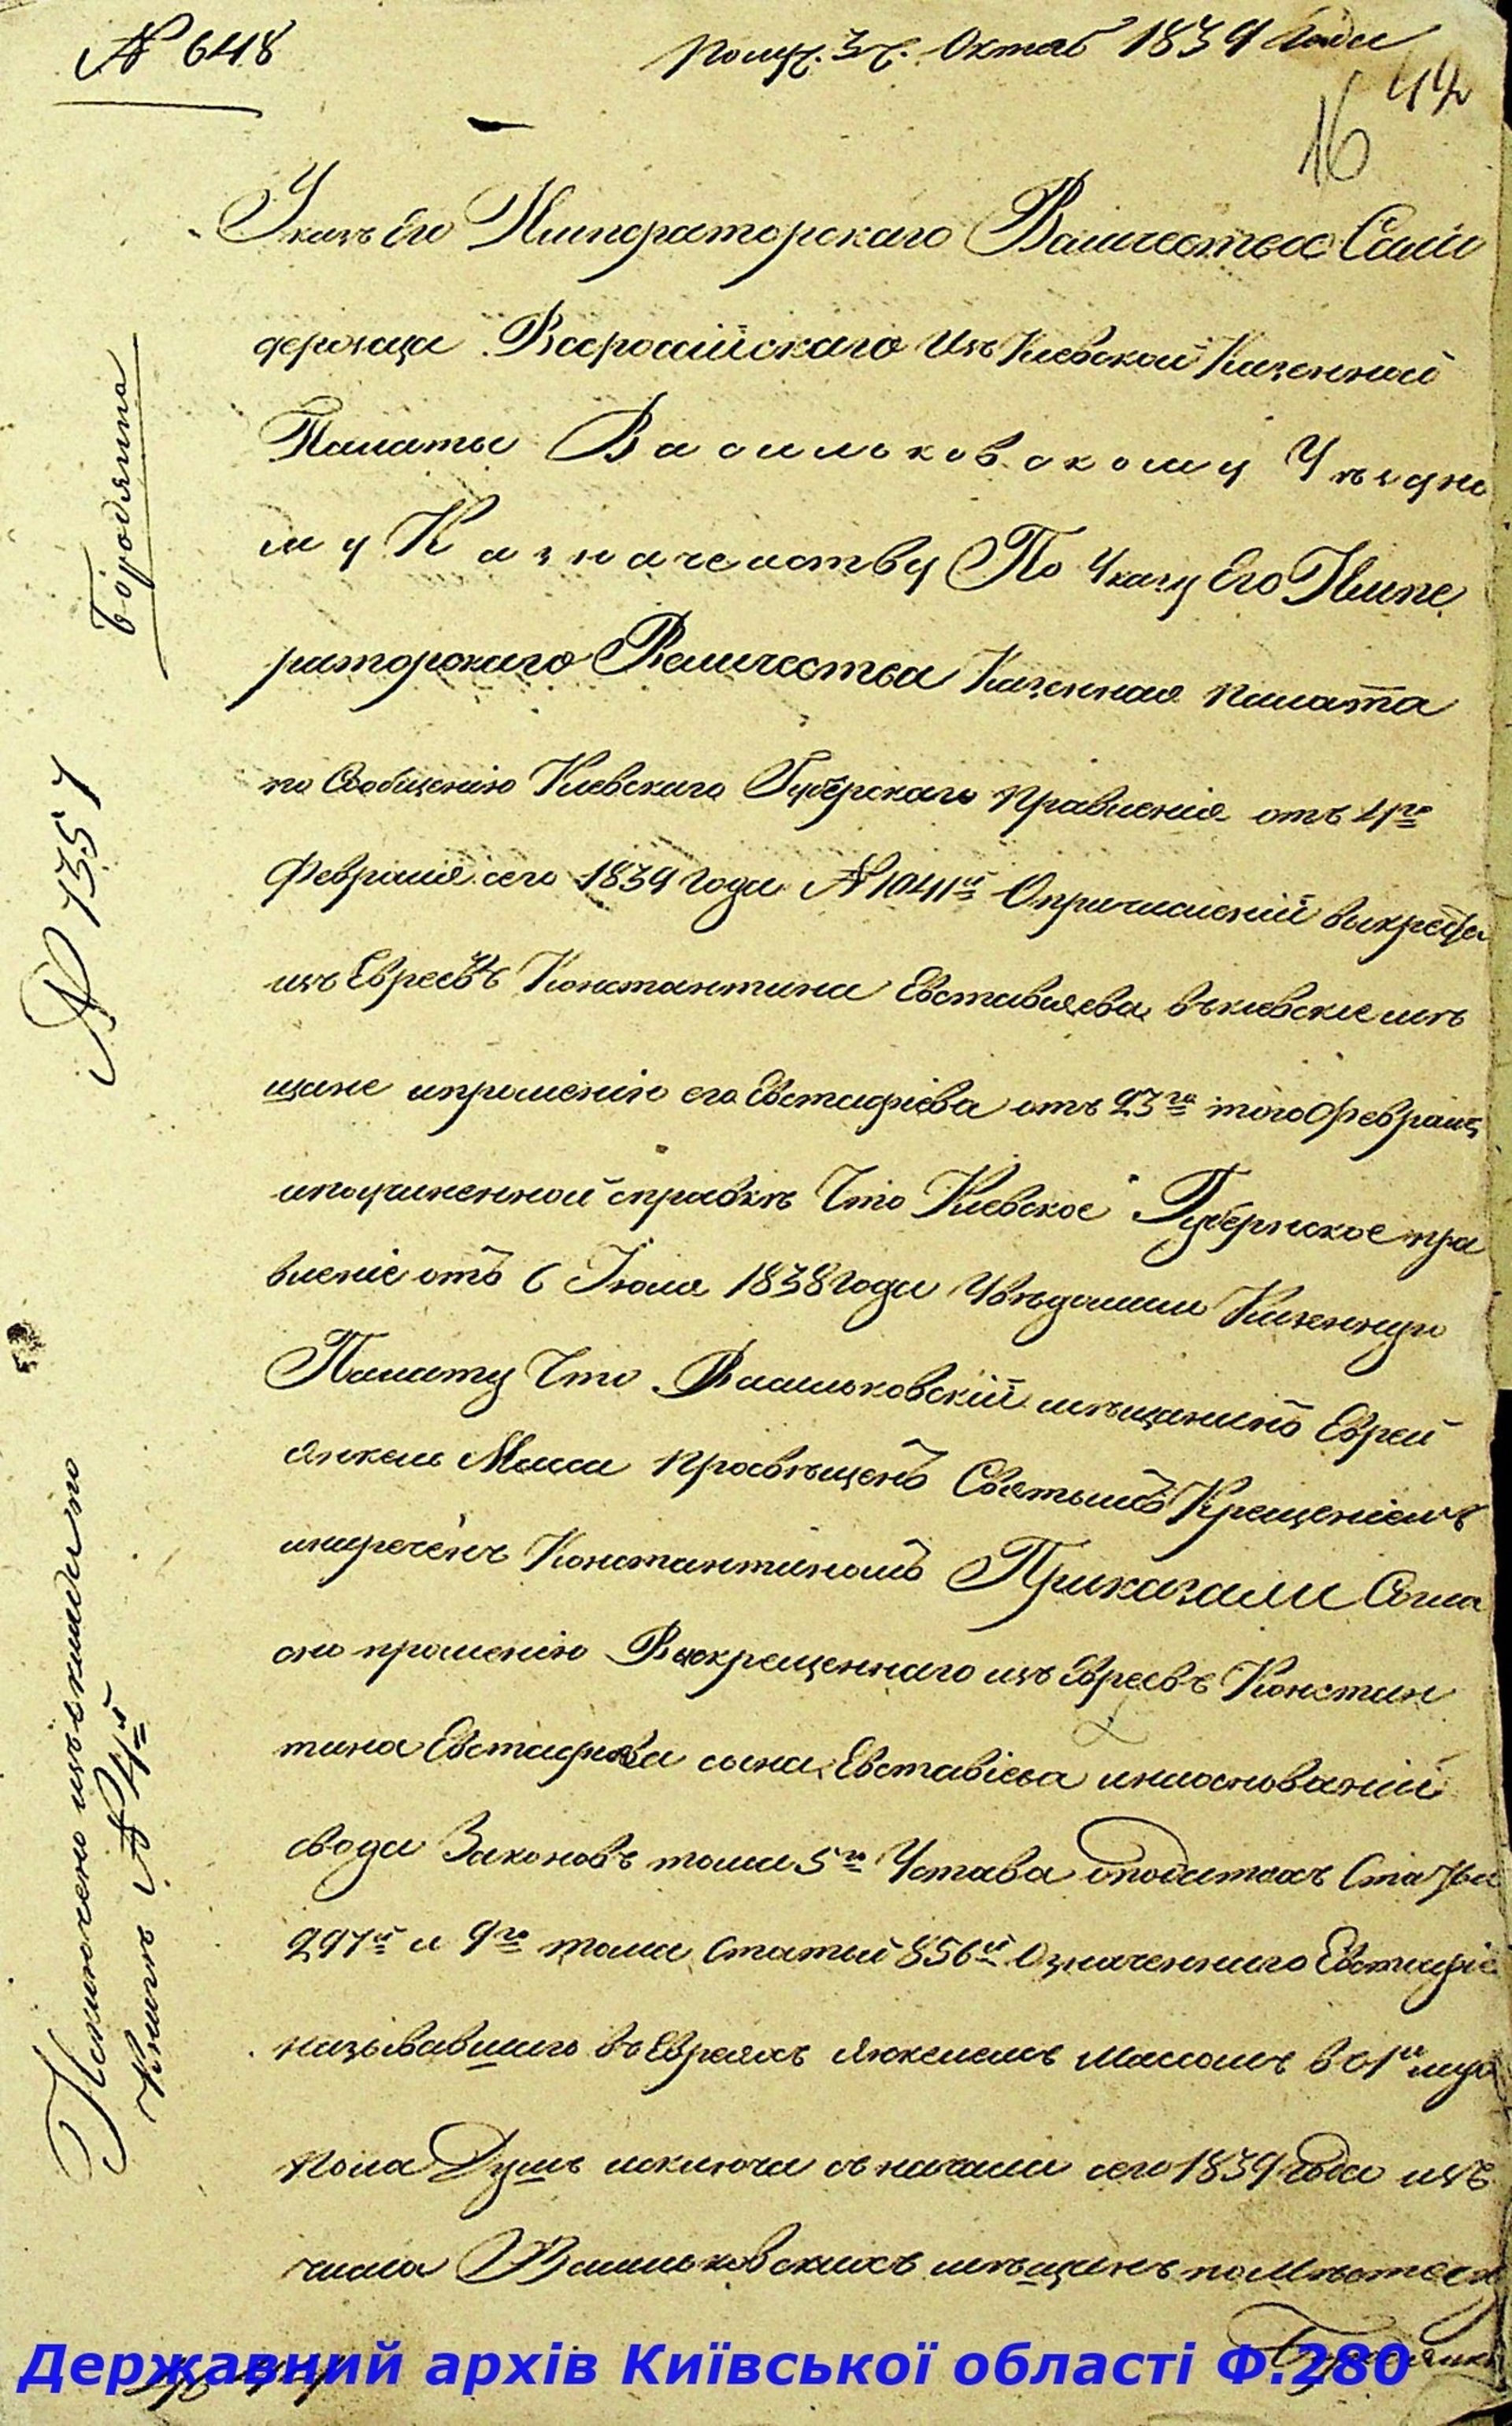 № 648
Получ. 3 ч. Октяб 1839 Года
42
16
Указъ Его Императорскаго Величества Само
держца Всеросійскаго Изъ Киевской Казенной
Палаты Васильковскому Уездно
му Казначейству По Указу Его Импе
раторскаго Величества Казенная палата
по Сообщенію Киевскаго Губерскаго правления отъ 4го
февраля сего 1839 года № 1041й О причисленіи выкреста
изъ Евреевъ Константина Евставиева въ киевские мѣ
щане и прошенію его Евстафіева отъ 23го того февраля
и по учиненной справкѣ Что Киевское Губернское пра
вленіе отъ 6 Июля 1838 года Увѣдомило Казенную
Палату Что Васильковскій мѣщанинъ Еврей
Янкель Масса просвѣщенъ Святымъ Крещеніемъ
и нареченъ Константиномъ Приказали Согла
сно прошенію Выкрещеннаго изъ Евреевъ Констан
тина Евстафиева сына Евставіева и на основаніи
свода Законовъ тома 5го Устава о податяхъ Статьи
297й и 9го тома Статьи 856й Означеннаго Евстафіе
называвшаго въ Евреяхъ Янкелемъ Массомъ въ 1й муж
пола Душѣ исключа съ начала сего 1839 года изъ
числа Васильковскихъ мѣщанъ по Мѣстеч
Бородянк
Бородянка
№ 1357
Исключено изъ оклада по
Книгѣ № 4й
Державний архів Київської області Ф.280